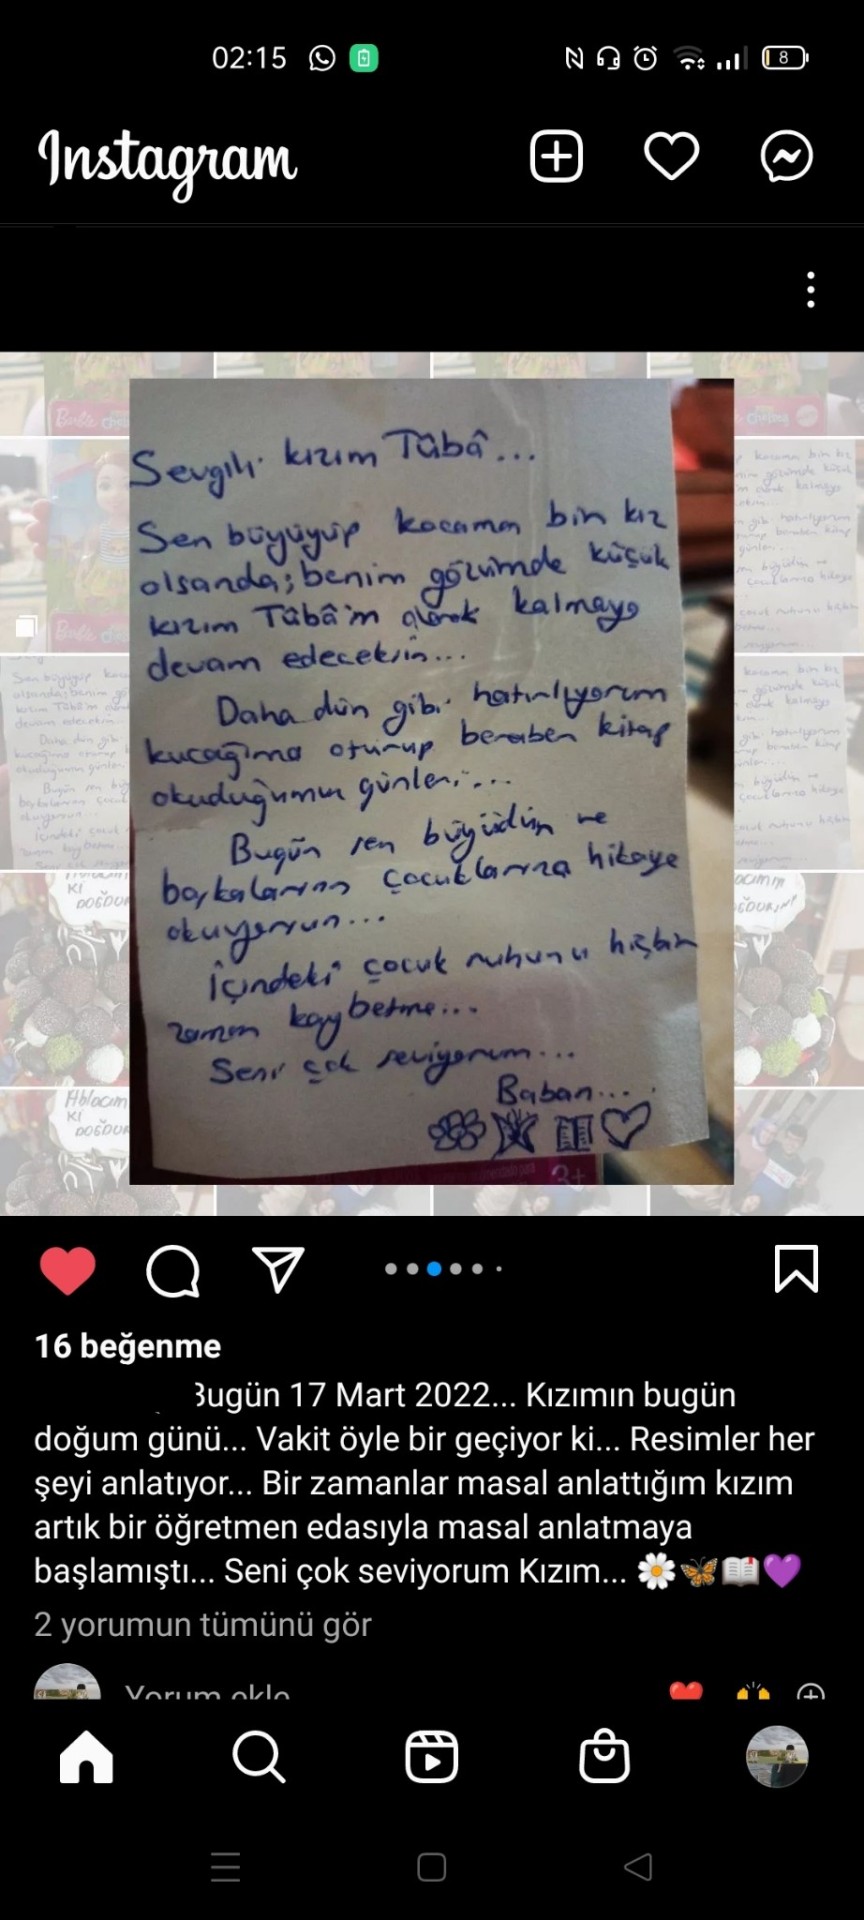 02:15
8
Instagram
Barbie
chelsea
Sevgili kızım Tûbâ...
Sen büyüyüp kocaman bir kız
olsanda; benim gözümde küçük
kızım Tûbâ'm olarak kalmaya
devam edeceksin...
Daha dün gibi hatırlıyorum
kucağıma oturup beraber kitap
okuduğumuz günleri...
Bugün sen büyüdün ve
başkalarının çocuklarına hikaye
okuyorsun...
İçindeki çocuk ruhunu hiçbir
zaman kaybetme...
Seni çok seviyorum...
Baban...
3+
Ablacım
KI
DOĞDUN
16 beğenme
Bugün 17 Mart 2022... Kızımın bugün
doğum günü... Vakit öyle bir geçiyor ki... Resimler her
şeyi anlatıyor... Bir zamanlar masal anlattığım kızım
artık bir öğretmen edasıyla masal anlatmaya
başlamıştı... Seni çok seviyorum Kızım... 🌼🦋📖💜
2 yorumun tümünü gör
Yorum ekle